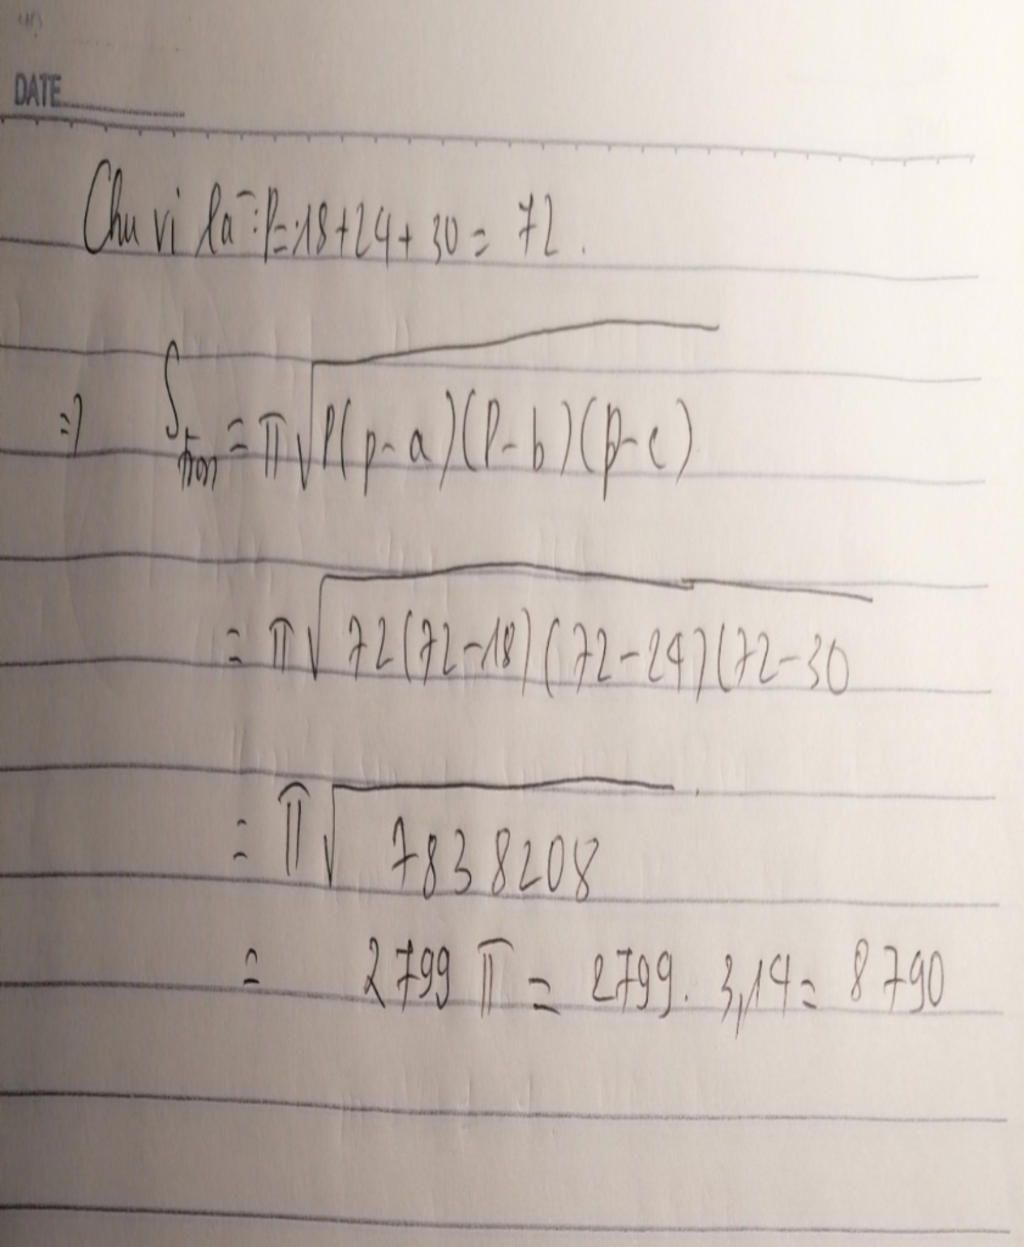 DATE
Chu vi là: P=18+24+30=72.
=> S tròn = π√P(p-a)(P-b)(p-c)
= π√72(72-18)(72-24)(72-30
= π√7838208
= 2799π = 2799.3,14= 8790